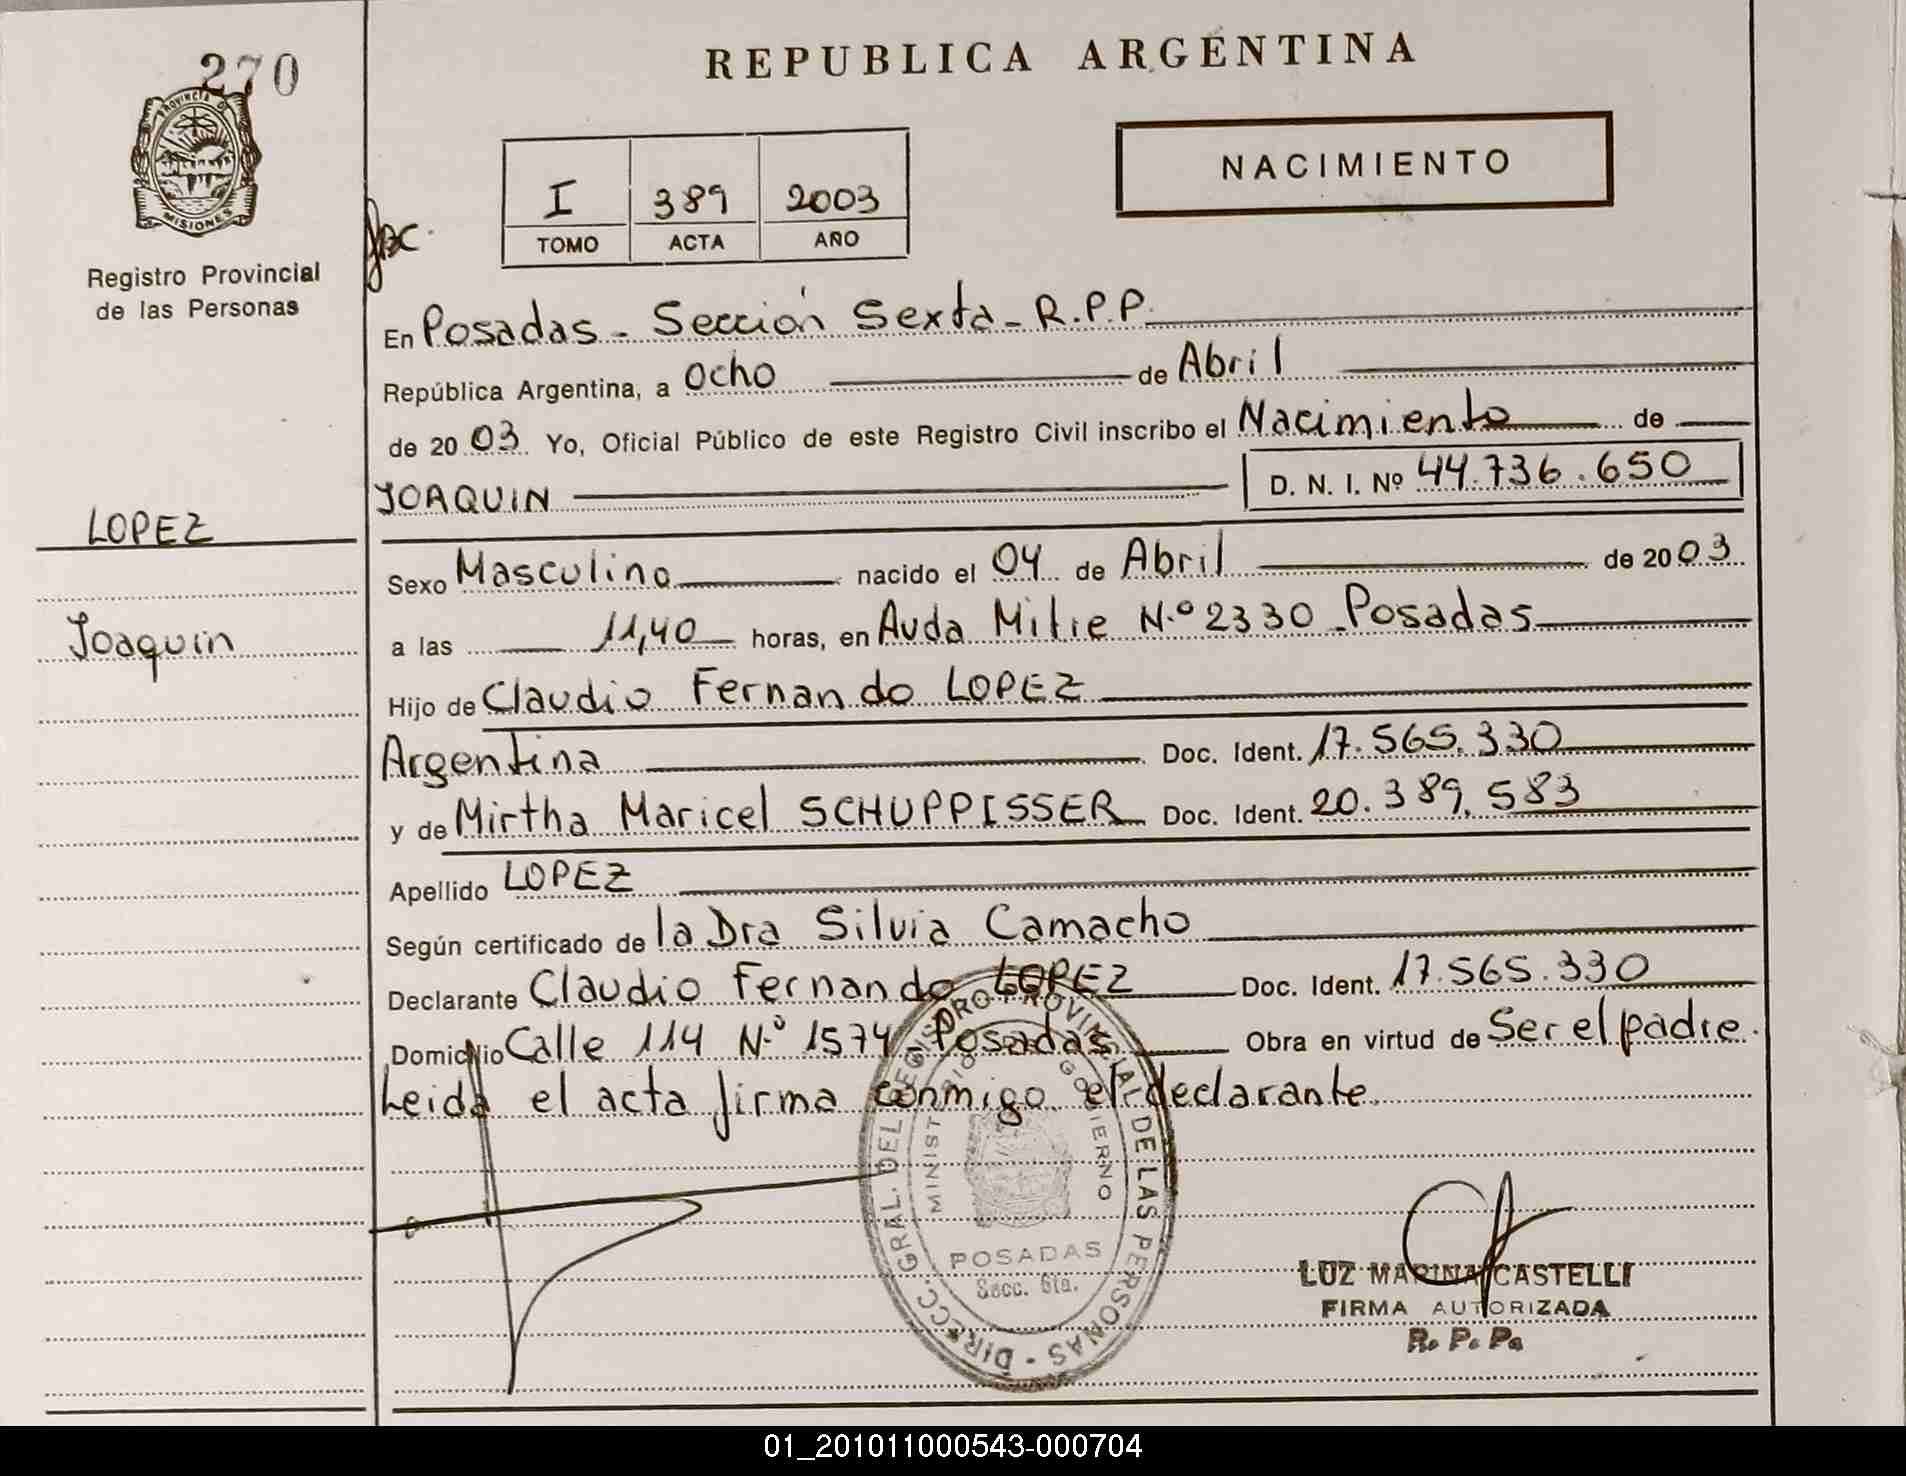 270
PROVINCIA DE
MISIONES
Registro Provincial
de las Personas
LOPEZ
Joaquin
REPUBLICA ARGENTINA
I 389 2003
TOMO ACTA AÑO
NACIMIENTO
En Posadas - Sección Sexta - R.P.P.
República Argentina, a Ocho de Abril
de 20 03 Yo, Oficial Público de este Registro Civil inscribo el Nacimiento de
JOAQUIN D. N. I. Nº 44.736.650
Sexo Masculino nacido el 04 de Abril de 20 03
a las 11,40 horas, en Avda Mitre N.º 2330 Posadas
Hijo de Claudio Fernando LOPEZ
Argentina Doc. Ident. 17.565.330
y de Mirtha Maricel SCHUPPISSER Doc. Ident. 20.389.583
Apellido LOPEZ
Según certificado de la Dra Silvia Camacho
Declarante Claudio Fernando LOPEZ Doc. Ident. 17.565.330
Domicilio Calle 114 N.º 1574 Posadas Obra en virtud de Ser el padre.
Leida el acta firma conmigo el declarante.
DIRECC. GRAL. DEL REGISTRO PROVINCIAL DE LAS PERSONAS
MINISTERIO GOBIERNO
POSADAS
Secc. 6ta.
LUZ MARINA CASTELLI
FIRMA AUTORIZADA
R. P. P.
01_201011000543-000704